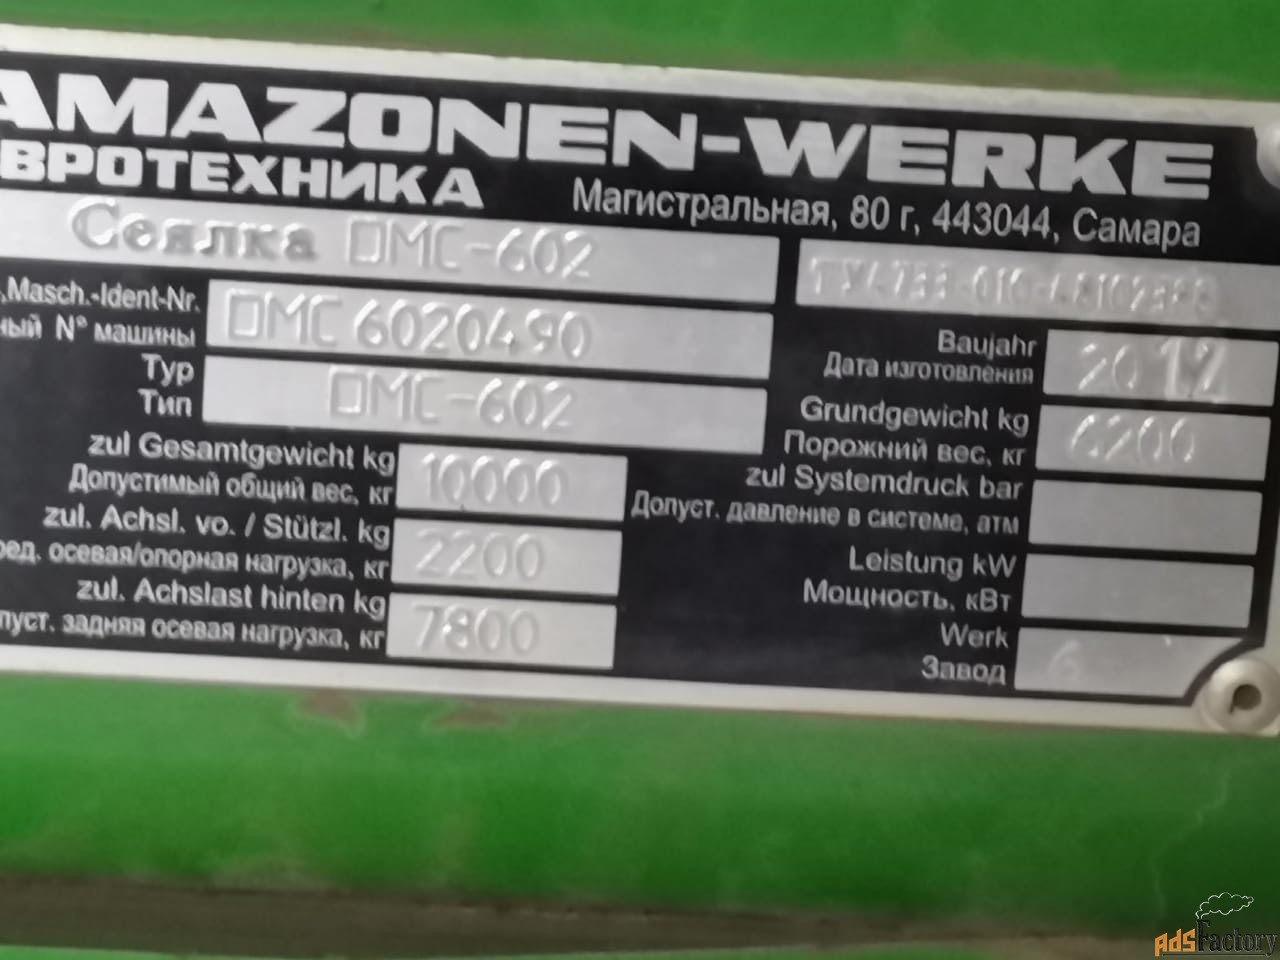 AMAZONEN-WERKE
ВРОТЕХНИКА
Магистральная, 80 г, 443044, Самара
Сеялка DMC-602
.Masch.-Ident-Nr. DMC 6020490
ный № машины
Typ
Тип DMC-602
Baujahr
Дата изготовления 2012
Grundgewicht kg
Порожний вес, кг 6200
zul Gesamtgewicht kg
Допустимый общий вес, кг 10000
zul Systemdruck bar
Допуст. давление в системе, атм
zul. Achsl. vo. / Stützl. kg
ред. осевая/опорная нагрузка, кг 2200
Leistung kW
Мощность, кВт
zul. Achslast hinten kg
пуст. задняя осевая нагрузка, кг 7800
Werk
Завод 6
AdsFactory